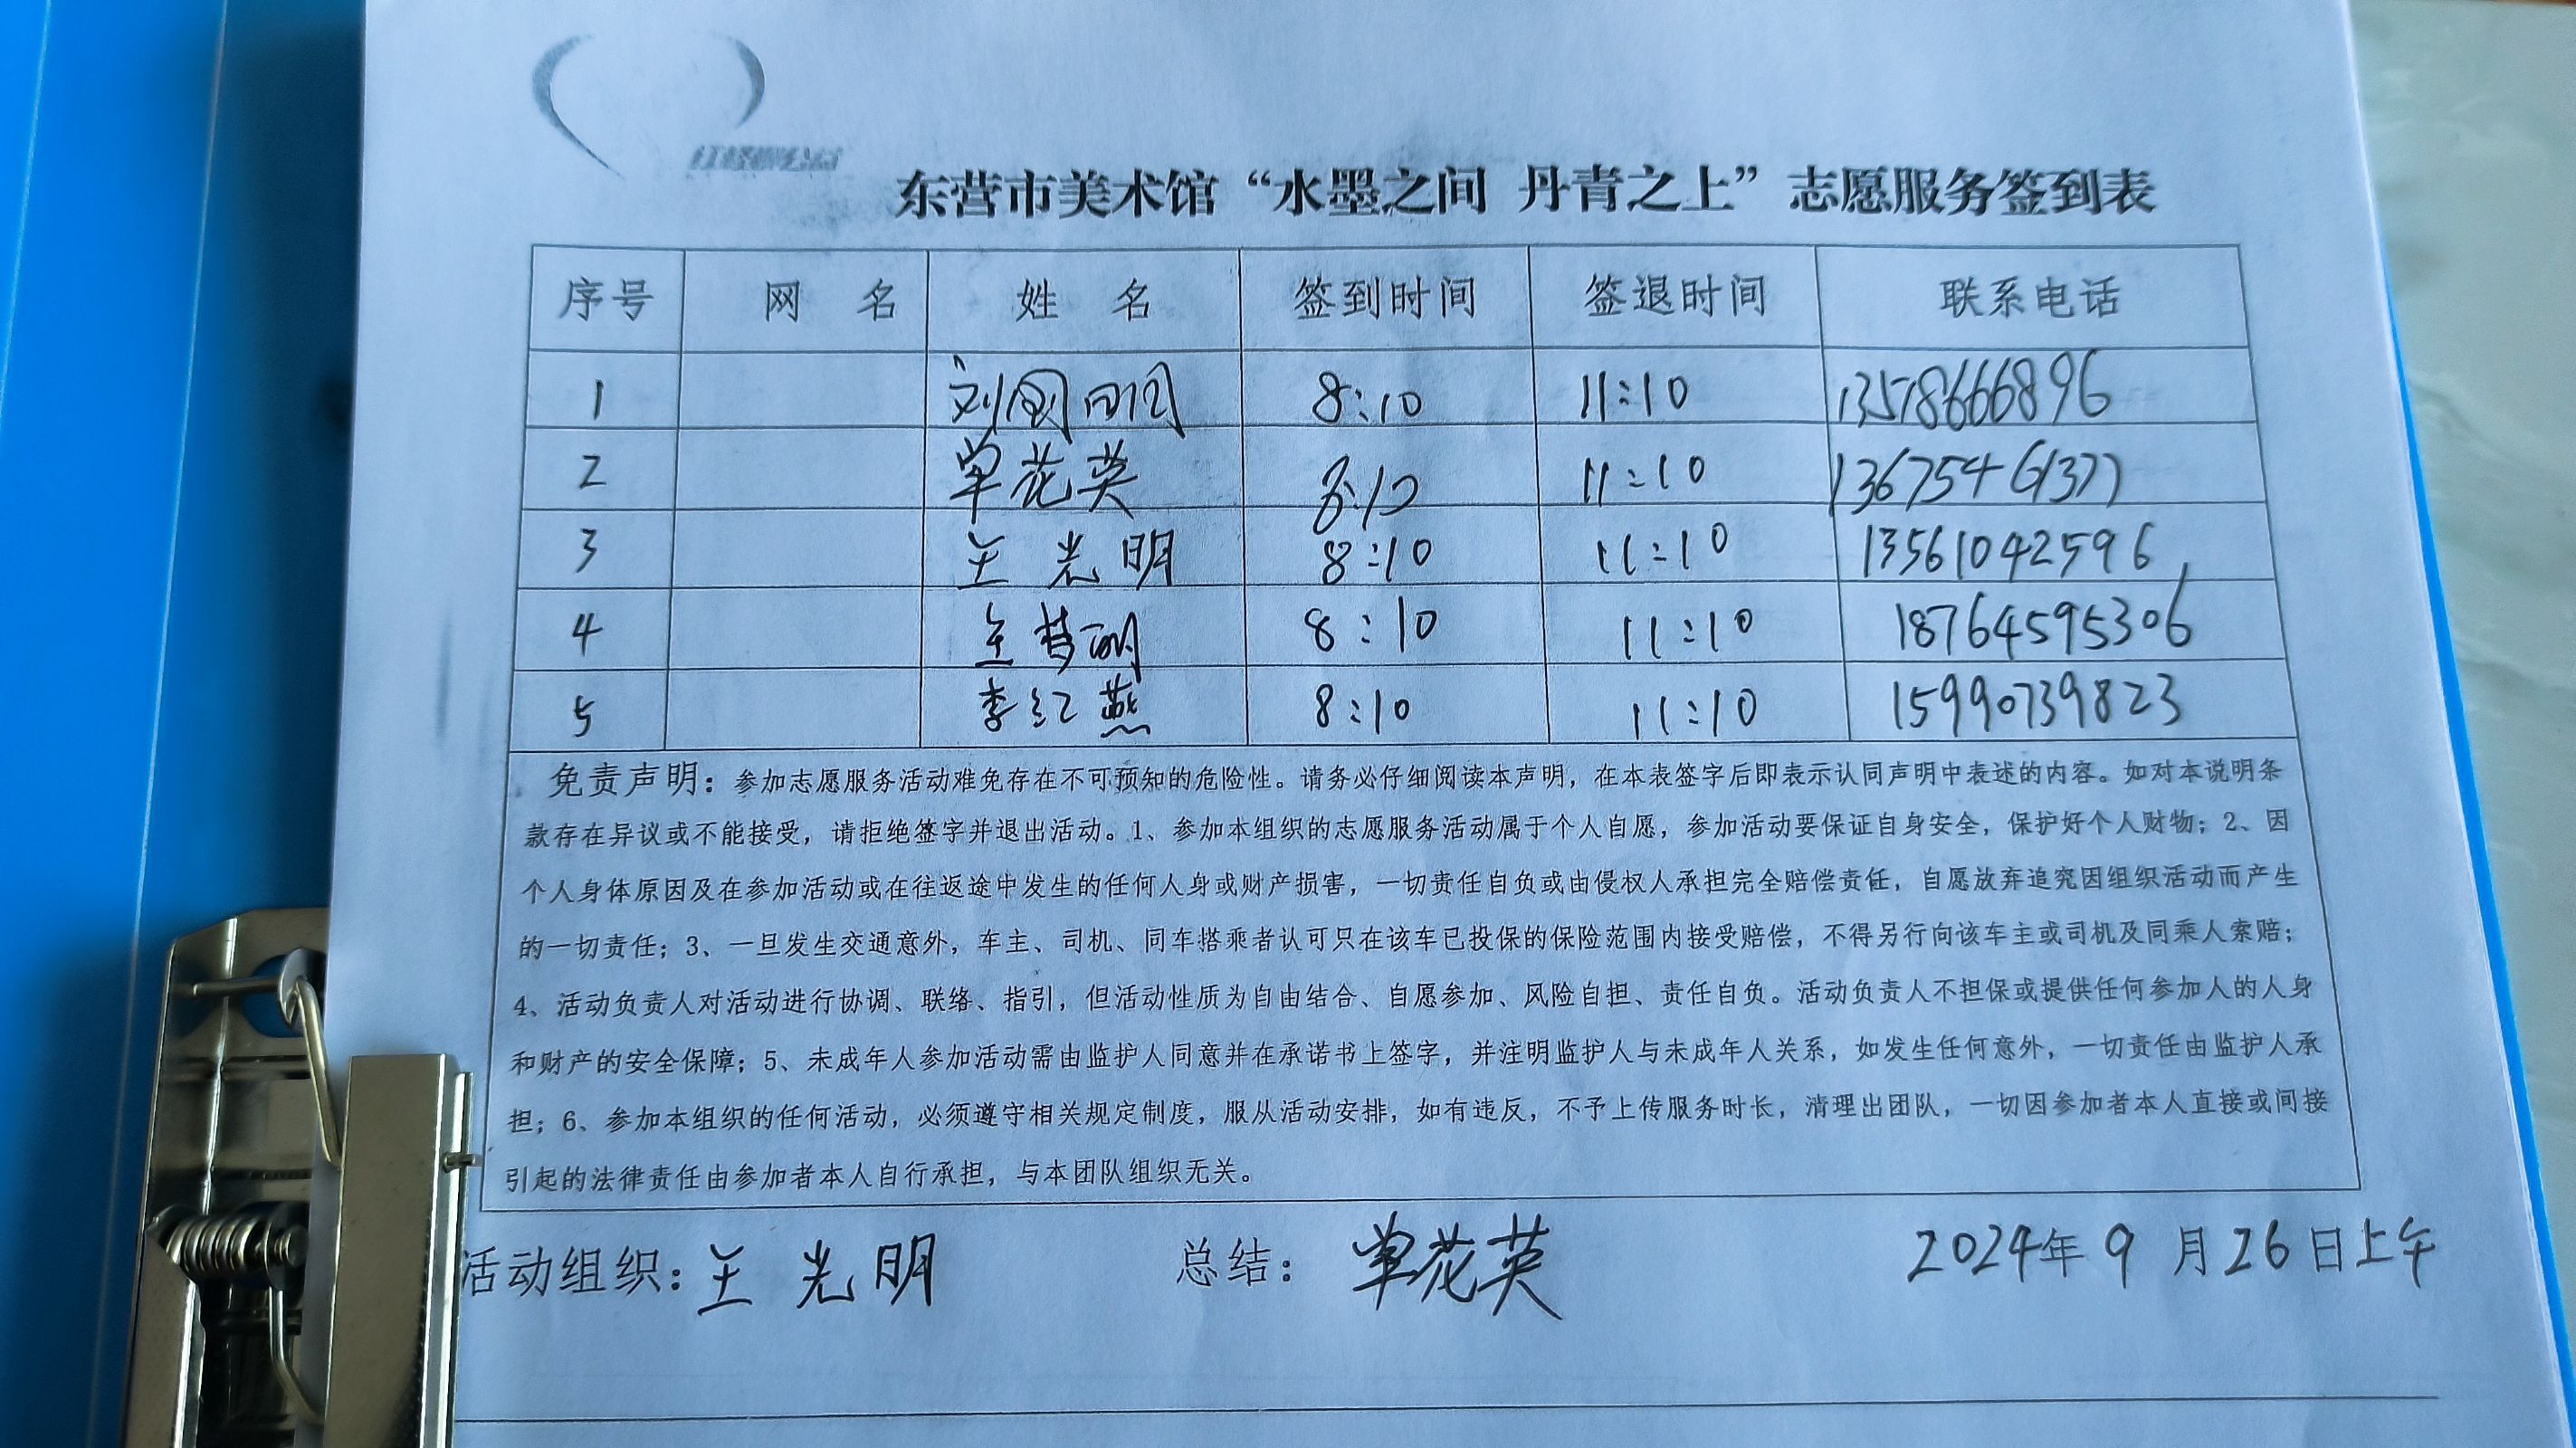 东营市美术馆“水墨之间 丹青之上”志愿服务签到表
序号 网 名 姓 名 签到时间 签退时间 联系电话
1 8:10 11:10 13578666896
2 单花英 8:10 11:10 13675461377
3 王光明 8:10 11:10 13561042596
4 8:10 11:10 18764595306
5 李红燕 8:10 11:10 15990739823
免责声明：参加志愿服务活动难免存在不可预知的危险性。请务必仔细阅读本声明，在本表签字后即表示认同声明中表述的内容。如对本说明条
款存在异议或不能接受，请拒绝签字并退出活动。1、参加本组织的志愿服务活动属于个人自愿，参加活动要保证自身安全，保护好个人财物；2、因
个人身体原因及在参加活动或在往返途中发生的任何人身或财产损害，一切责任自负或由侵权人承担完全赔偿责任，自愿放弃追究因组织活动而产生
的一切责任；3、一旦发生交通意外，车主、司机、同车搭乘者认可只在该车已投保的保险范围内接受赔偿，不得另行向该车主或司机及同乘人索赔；
4、活动负责人对活动进行协调、联络、指引，但活动性质为自由结合、自愿参加、风险自担、责任自负。活动负责人不担保或提供任何参加人的人身
和财产的安全保障；5、未成年人参加活动需由监护人同意并在承诺书上签字，并注明监护人与未成年人关系，如发生任何意外，一切责任由监护人承
担；6、参加本组织的任何活动，必须遵守相关规定制度，服从活动安排，如有违反，不予上传服务时长，清理出团队，一切因参加者本人直接或间接
引起的法律责任由参加者本人自行承担，与本团队组织无关。
活动组织：王光明 总结：单花英 2024年9月26日上午